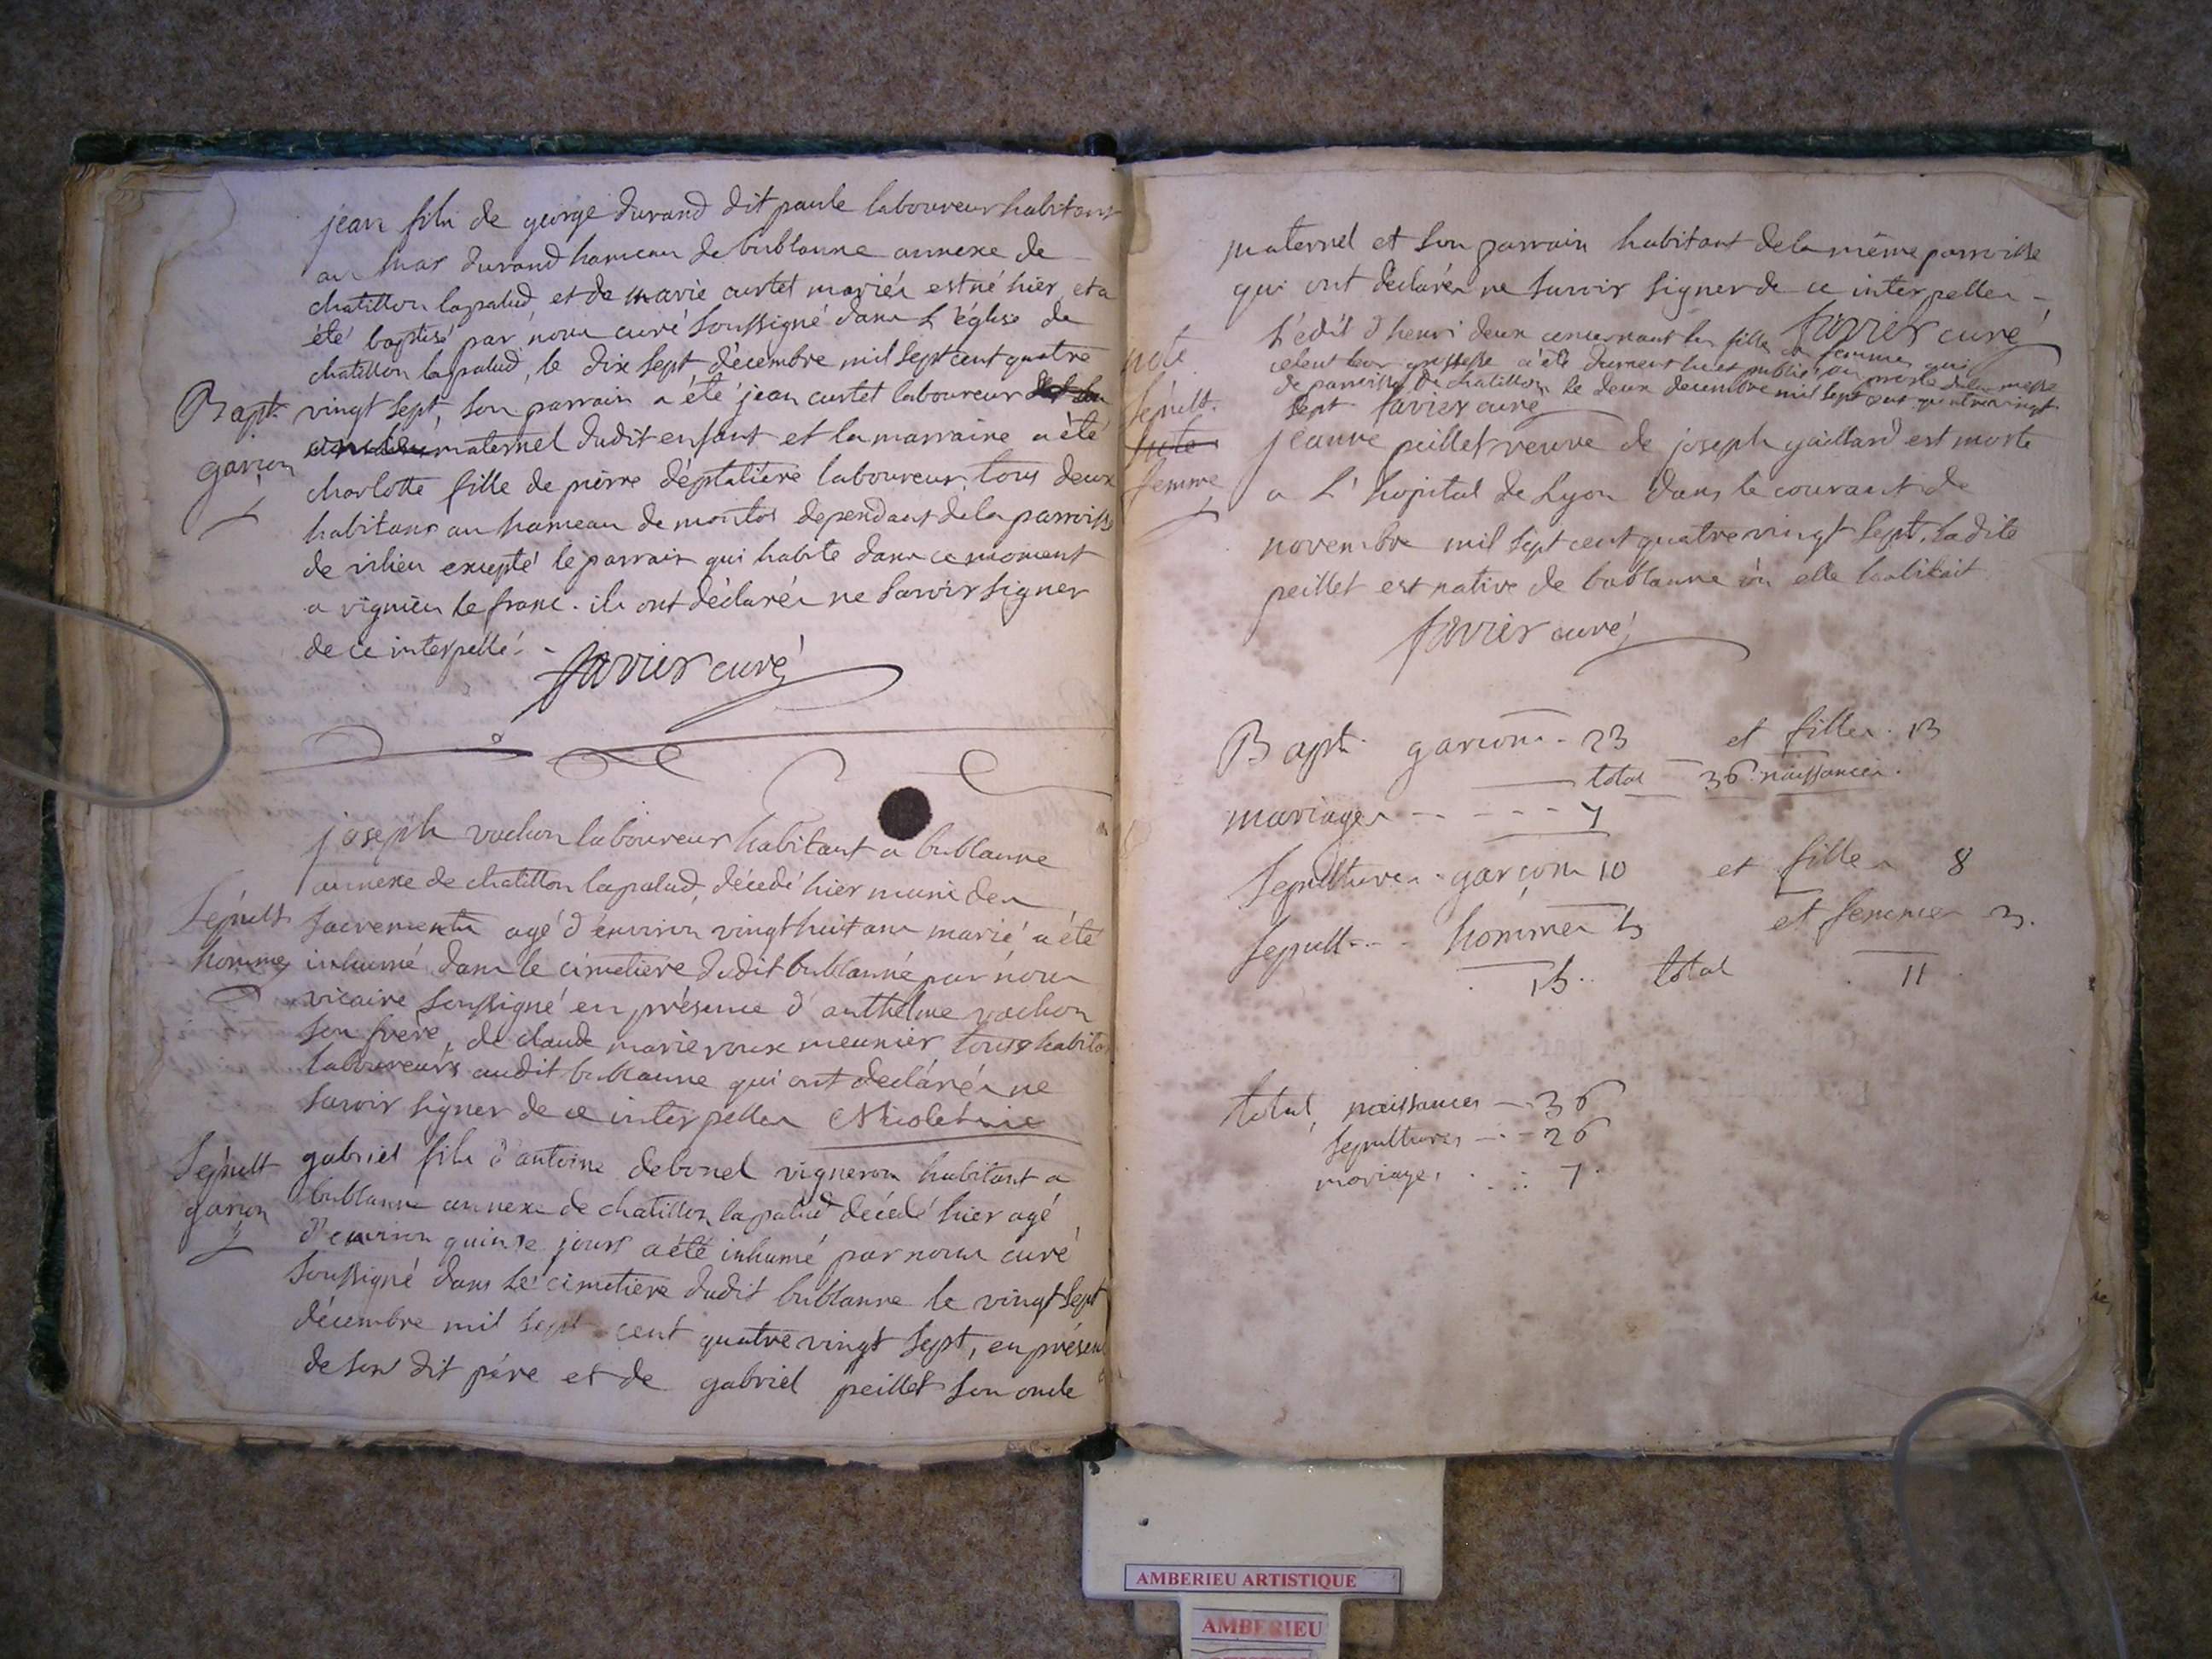 jean fils de george durand dit paule laboureur habitant
au mas durand hameau de bublanne annexe de
chatillon lapalud, et de marie curtet mariés est né hier, et a
été baptisé par nous curé soussigné dans l'église de
chatillon lapalud, le dix sept décembre mil sept cent quatre
Bapt.
garcon
vingt sept, son parrain a été jean curtet laboureur
maternel dudit enfant et la marraine a été
charlotte fille de pierre déplatiere laboureur, tous deux
habitans au hameau de montos dependant de la parroisse
de vilieu excepté le parrain qui habite dans ce moment
a vignieu le franc. ils ont déclarés ne savoir signer
de ce interpellé.
favier curé
joseph vachon laboureur habitant a bublanne
annexe de chatillon lapalud, décédé hier muni des
Sepult
homme
sacrements agé d'environ vingt huit ans marié a été
inhumé dans le cimetiere dudit bublanne par nous
vicaire soussigné en présence d'anthelme vachon
son frere, de claude marie roux meunier tous habitans
laboureurs audit bublanne qui ont declarés ne
savoir signer de ce interpellés Nicolet vic
Sepult
garcon
gabriel fils d'antoine debonel vigneron habitant a
bublanne annexe de chatillon lapalud décédé hier agé
d'environ quinze jours a été inhumé par nous curé
soussigné dans le cimetiere dudit bublanne le vingt sept
décembre mil sept cent quatre vingt sept, en présence
de son dit père et de gabriel peillet son oncle
maternel et son parrain habitant de la même parroisse
qui ont déclarés ne savoir signer de ce interpellés -
favier curé
note
L'édit d'henri deux concernant les filles et femmes qui
celent leur grossesse a été dument lu et publié au prone de la messe
de parroisse de chatillon le deux decembre mil sept cent quatre vingt
sept favier curé
sepult.
note
femme
jeanne peillet veuve de joseph gaillard est morte
a l'hopital de Lyon dans le courant de
novembre mil sept cent quatre vingt sept. ladite
peillet est native de bublanne où elle habitait
favier curé
Bapt. garcons - 23 et filles . 13
total 36 naissances.
mariages - - - - - 7
Sepultures - garçons 10 et filles 8
sepult - - - hommes 5 et femmes 3.
15. total 11
total, naissances - 36
sepultures - . - 26
mariages . . : 7.
AMBERIEU ARTISTIQUE
AMBERIEU